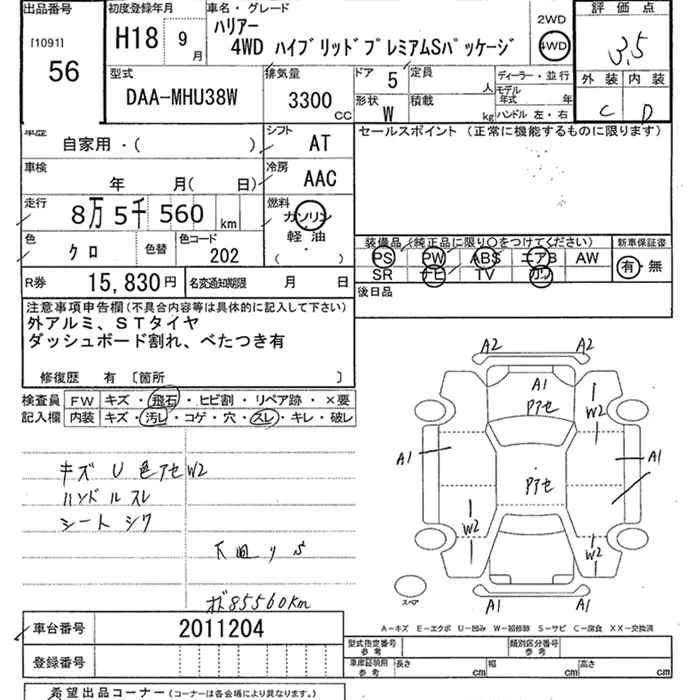 出品番号 初度登録年月 車名・グレード 評価点
[1091] 56
H18 9月
ハリアー
4WD ハイブリッドプレミアムSパッケージ
2WD
4WD
3.5
型式 DAA-MHU38W
排気量 3300 CC
ドア 5
定員 人
形状 W
積載 kg
ディーラー・並行
モデル年式 年
ハンドル 左・右
外装 内装
C D
車歴 自家用・( )
シフト AT
セールスポイント (正常に機能するものに限ります)
車検 年 月( 日)
冷房 AAC
走行 8万5千560km
燃料 ガソリン
軽・油
( )
色 クロ 色替
色コード 202
装備品 (純正品に限り○をつけてください)
新車保証書
PS PW ABS エアB AW
SR ナビ TV カワ
有・無
R券 15,830円 名変通知期限 月 日
後日品
注意事項申告欄(不具合内容等は具体的に記入して下さい)
外アルミ、STタイヤ
ダッシュボード割れ、べたつき有
修復歴 有 〔箇所 〕
検査員 FW キズ・飛石・ヒビ割・リペア跡・×要
記入欄 内装 キズ・汚レ・コゲ・穴・スレ・キレ・破レ
A2 A2
A1
アセ
W2
A1 A1
アセ
W2
W2
A1 A1
スペア
キズ U 色アセ W2
ハンドルスレ
シート シワ
下回りS
メ゙85560km
A-キズ E-エクボ U-凹み W-補修跡 S-サビ C-腐食 XX-交換済
車台番号 2011204
登録番号
型式指定番号 参考
類別区分番号 参考
車庫証明用 参考 長さ cm 幅 cm 高さ cm
希望出品コーナー (コーナーは各会場により異なります。)